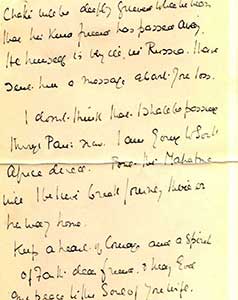 Charlie will be deeply grieved when he hears
that his kind friend has passed away.
He himself is very ill, in Russia. I have
sent him a message about your loss.
I don't think that I shall be passing
through Paris now. I am going to South
Africa direct. Mahatma
will I believe break journey there on
his way home.
Keep a heart of Courage and a Spirit
of Faith dear friend. & may Ever
give peace to the Soul of your wife.